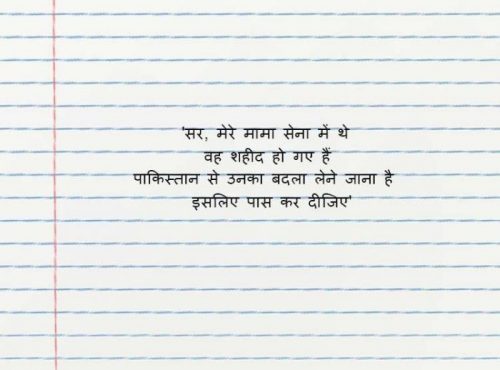 'सर, मेरे मामा सेना में थे
वह शहीद हो गए हैं
पाकिस्तान से उनका बदला लेने जाना है
इसलिए पास कर दीजिए'